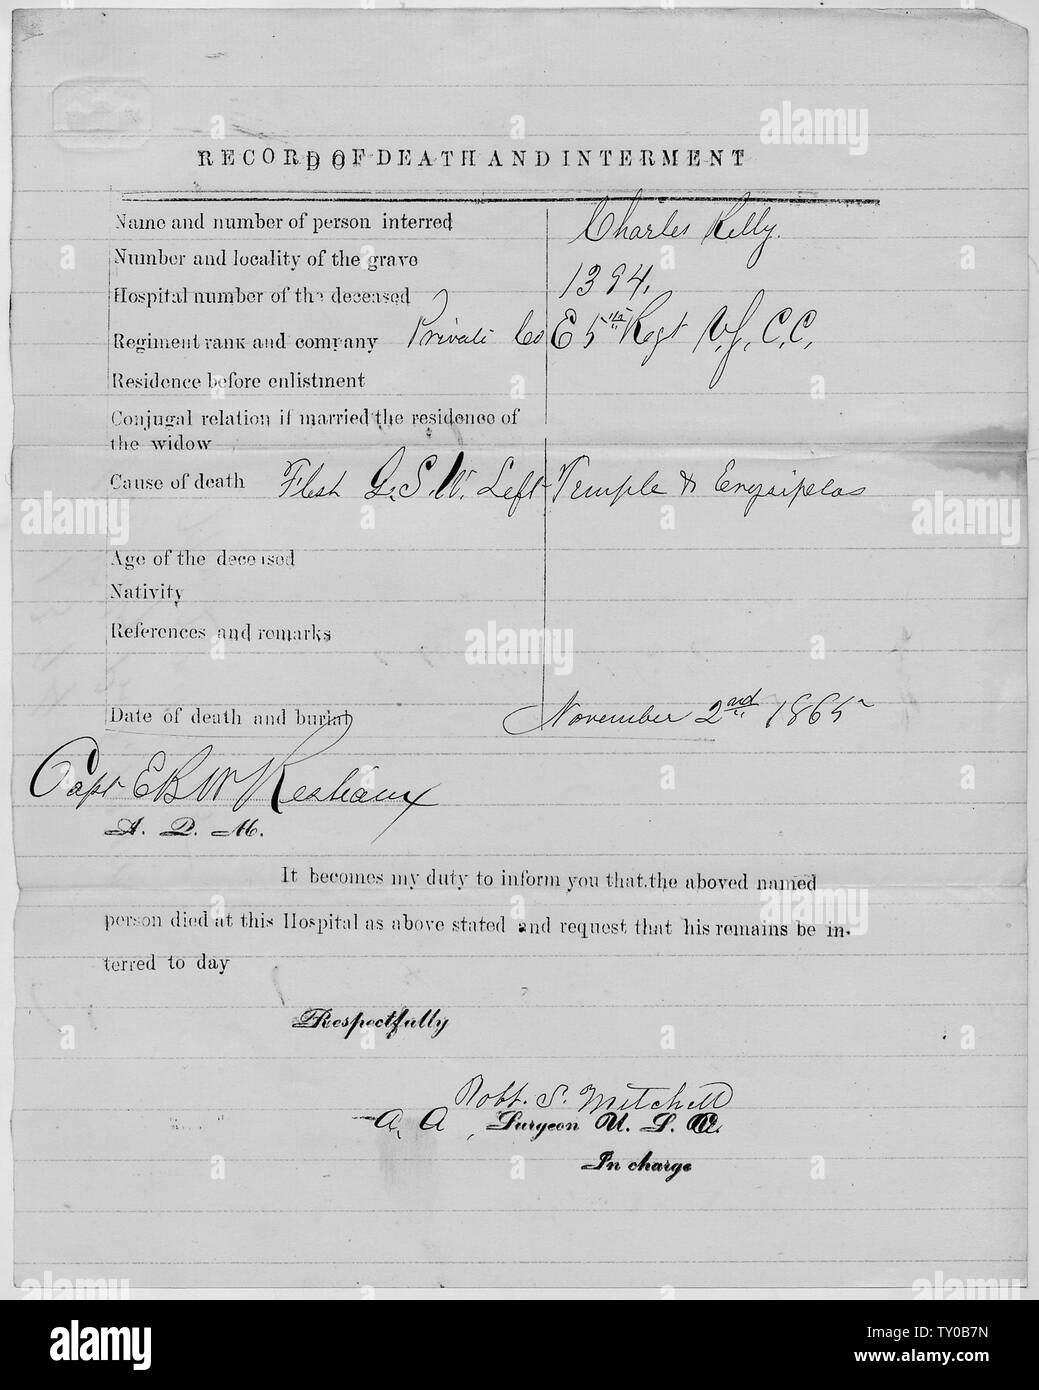 RECORD OF DEATH AND INTERMENT
Name and number of person interred Charles Kelly.
Number and locality of the grave
Hospital number of the deceased 1394.
Regiment rank and company Private Co E 5th Regt U.S.C.C.
Residence before enlistment
Conjugal relation if married the residence of
the widow
Cause of death Flesh G.S.W. Left Temple & Erysipelas
Age of the deceased
Nativity
References and remarks
Date of death and burial November 2nd 1865
Capt E B W
A. Q. M.
It becomes my duty to inform you that.the aboved named
person died at this Hospital as above stated and request that his remains be in-
terred to day
Respectfully
Robt. S. Mitchell
A. A. Surgeon U. S. A.
In charge
alamy
alamy
Image ID: TY0B7N
www.alamy.com